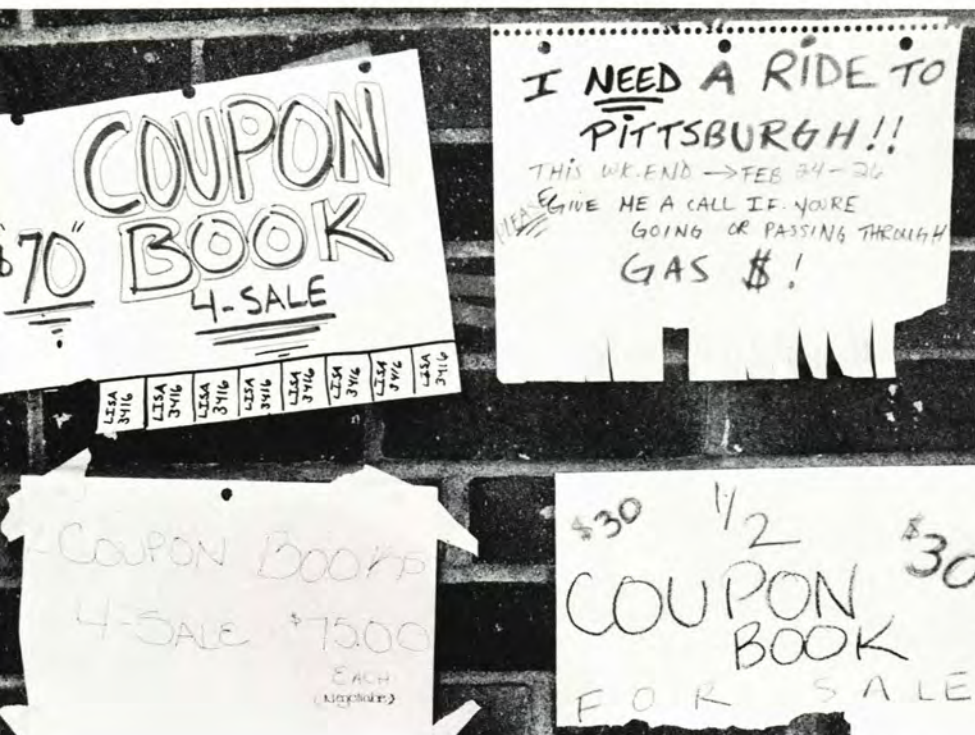 COUPON
BOOK
"$70"
4-SALE
LISA 3416
LISA 3416
LISA 3416
LISA 3416
LISA 3416
LISA 3416
LISA 3416
LISA 3416
I NEED A RIDE TO
PITTSBURGH!!
THIS WK.END → FEB 24-26
PLEASE GIVE ME A CALL IF YOURE
GOING OR PASSING THROUGH
GAS $!
COUPON BOOKS
4-SALE $75.00
EACH
(Negotiable)
$30 1/2 $30
COUPON
BOOK
FOR SALE